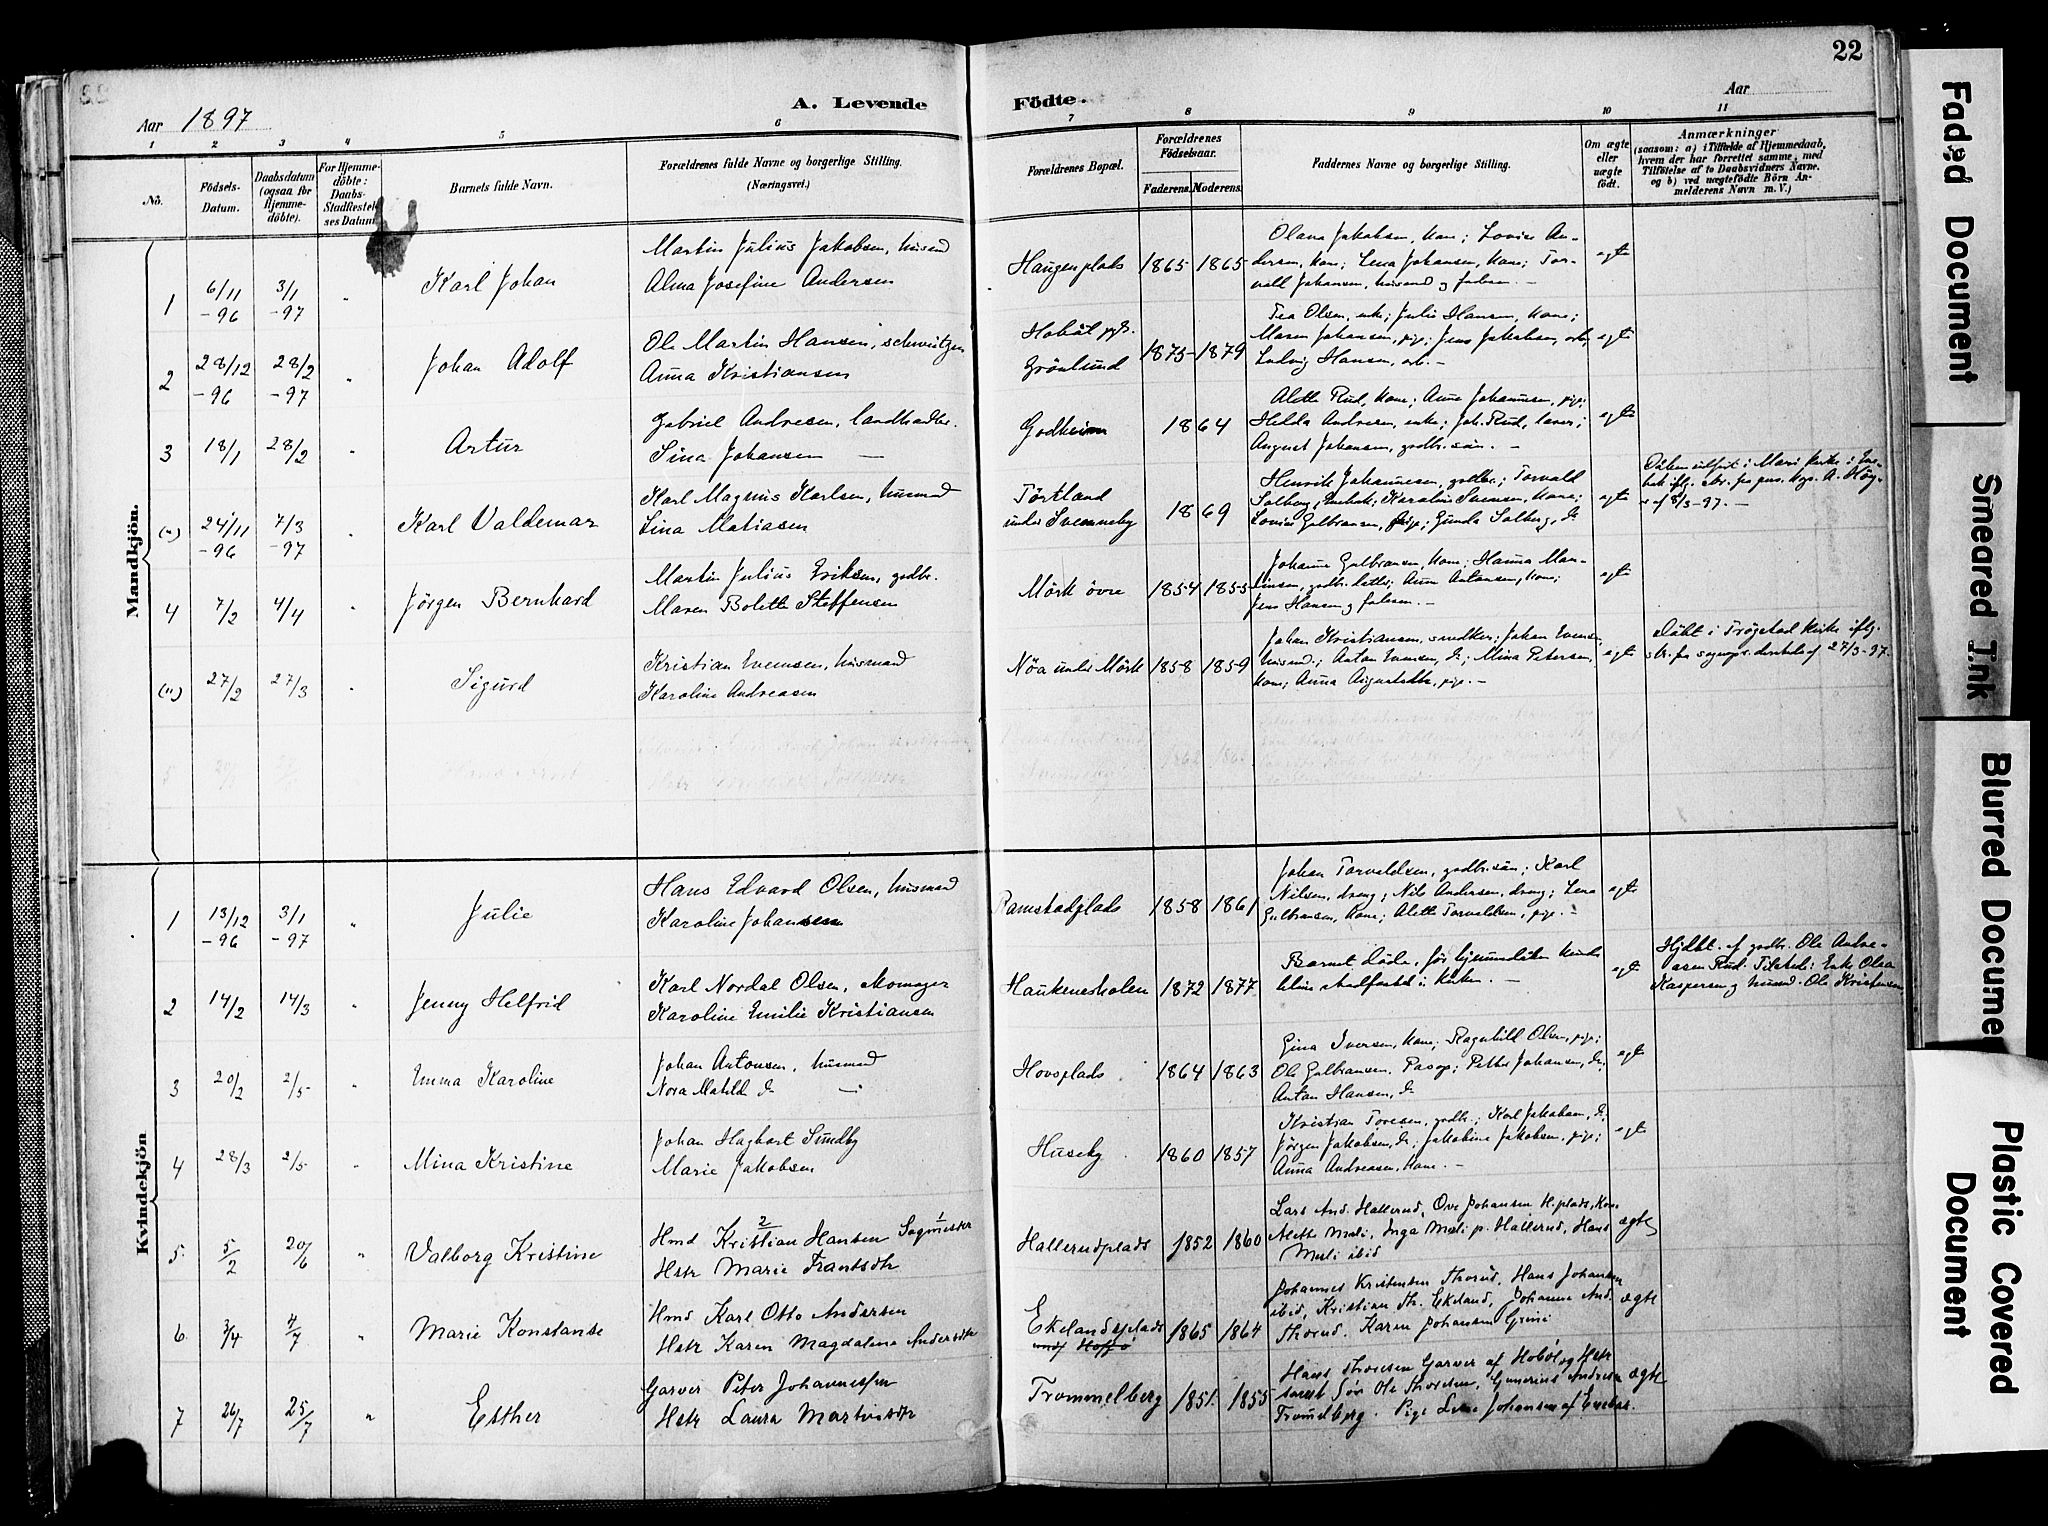 22
Aar 1897
A. Levende Födte.
Aar
1 2 3 4 5 6 7 8 9 10 11
No.
Födsels-Datum.
Daabsdatum (ogsaa for Hjemme-döbte).
For Hjemme-döbte: Daabs-Stadfæstel-ses Datum.
Barnets fulde Navn.
Forældrenes fulde Navne og borgerlige Stilling.
(Næringsvei.)
Forældrenes Bopæl.
Forældrenes Födselsaar.
Faderens. Moderens.
Faddernes Navne og borgerlige Stilling.
Om ægte eller uægte födt.
Anmærkninger
(saasom: a) i Tilfælde af Hjemmedaab,
hvem der har forrettet samme, med
Tilföielse af to Daabsvidners Navne.
og b) ved uægtefödte Börn An-
melderens Navn m. V.)
Mandkjön.
1 6/11 -96 3/1 -97 " Karl Johan
Martin Julius Jakobsen, husmd
Alma Josefine Andersen
Haugenplads 1865 1865
Olana Jakobsen, kone; Lovise An-
dersen, kone; Lena Johansen, kone; Tor-
vall Johansen, husmd og faderen. -
egte
2 28/12 -96 28/2 -97 " Johan Adolf
Ole Martin Hansen, schweitzer
Anna Kristiansen
Hobøl pgt.
Grönlund 1875 1879
Tea Olsen, enke; Julie Hansen, kone;
Maren Johansen, pige; Jens Jakobsen, arb.;
Ludvig Hansen, arb. -
egte
3 18/1 28/2 Artur
Gabriel Andresen, landhandler.
Sina Johansen
Godheim 1864
Alette Rud, kone; Anne Johannesen, pige;
Helda Andresen, enke; Joh. Rud,
August Johansen, gaardbr.sön. -
egte
(") 24/11 -96 7/3 -97 " Karl Valdemar
Karl Magnus Karlsen, husmd
Lina Matiasen
Törtland
under Svenneby 1869
Henrik Johannesen, gaardbr.; Torvald
Solberg, Enebak; Karoline Svensen, kone;
Lovise Gulbransen, pige; Gunda Solberg, do
egte
Daaben udført i Mari kirke i Ene-
bak
af 8/3-97. -
4 7/2 4/4 " Jörgen Bernhard
Martin Julius Eriksen, gaardbr.
Maren Bolette Steffensen
Mörk övre 1854 1855
Johanne Gulbransen, kone; Hanna Mar-
tinsen, gaardbr. datter; Anne Antonsen, kone;
Jens Hansen og faderen. -
egte
(") 27/2 27/3 " Sigurd
Kristian Evensen, husmand
Karoline Andreasen
Nöa under Mörk 1858 1859
Johan Kristiansen, snedker; Johan Evensen,
husmd.; Anton Evensen, do; Mina Petersen,
kone; Anna Augustsdtr, pige. -
egte
Döbt i Trögstad kirke iflg.
skr. fra sognepr. dersteds af 27/3-97.
Kvindekjön
1 13/12 -96 3/1 -97 " Julie
Hans Edvard Olsen, husmand
Karoline Johansen
Ramstadplads 1858 1861
Johan Torvaldsen, gaardbr.sön; Karl
Nilsen, dreng; Nils Andersen, dreng; Lena
Gulbransen, kone; Alette Torvaldsen, pige. -
egte
2 14/2 14/3 " Jenny Helfrid
Karl Nordal Olsen, skomager
Karoline Emilie Kristiansen
Haukeneskolen 1872 1877
Barnet döde, för hjemmedåben kunde
blive stadfæstet i kirken. -
egte
Hjdbt. af gaardbr. Ole Andre-
asen Rud. Tilsted: Enke Olea
Kaspersen og husmd. Ole Kristensen
3 20/2 2/5 " Emma Karoline
Johan Antonsen, husmd
Nora Matild do
Hovsplads 1864 1863
Gina Iversen, kone; Ragnhild Olsen, pige;
Ole Gulbransen. Pasop; Petter Johansen, do;
Anton Hansen, do
egte
4 28/3 2/5 " Mina Kristine
Johan Hagbart Sundby
Marie Jakobsen
Huseby 1860 1857
Kristian Toresen, gaardbr.; Karl Jakobsen, do;
Jörgen Jakobsen, do; Jakobine Jakobsen, pige;
Anna Andreasen, kone. -
egte
5. 5/2 20/6 " Valborg Kristine
Hmd Kristian Hansen Sagmester
Hstr Marie Frantsdtr
Hallerudplads 1852 1860
Lars And. Hallerud, Ove Johansen H.plads, Kone
Alette Meli, Inga Meli p. Hallerud, Hans
Meli ibid
ægte
6 3/4 4/7 " Marie Konstanse
Hmd Karl Otto Andersen
Hstr Karen Magdalene Andersdtr
Ekelandsplads 1865 1864
Johannes Kristensen Thorud, Hans Johansen
ibid, Kristian Th. Ekeland, Johanne And.
Thorud. Karen Johansen Grini
ægte
7 26/7 25/7 " Esther
Garver Peter Johannessen
Hstr Laura Martinsdtr
Trommelberg 1851. 1855
Hans Thoresen Garver af Hoböl og Hstr
samt Sön Ole Thoresen, Gunerius Andresen
Tromelberg. Pige Lene Johansen af Enebak.
ægte
Faded Document
Smeared Ink
Blurred Docume
Plastic Covered
Document